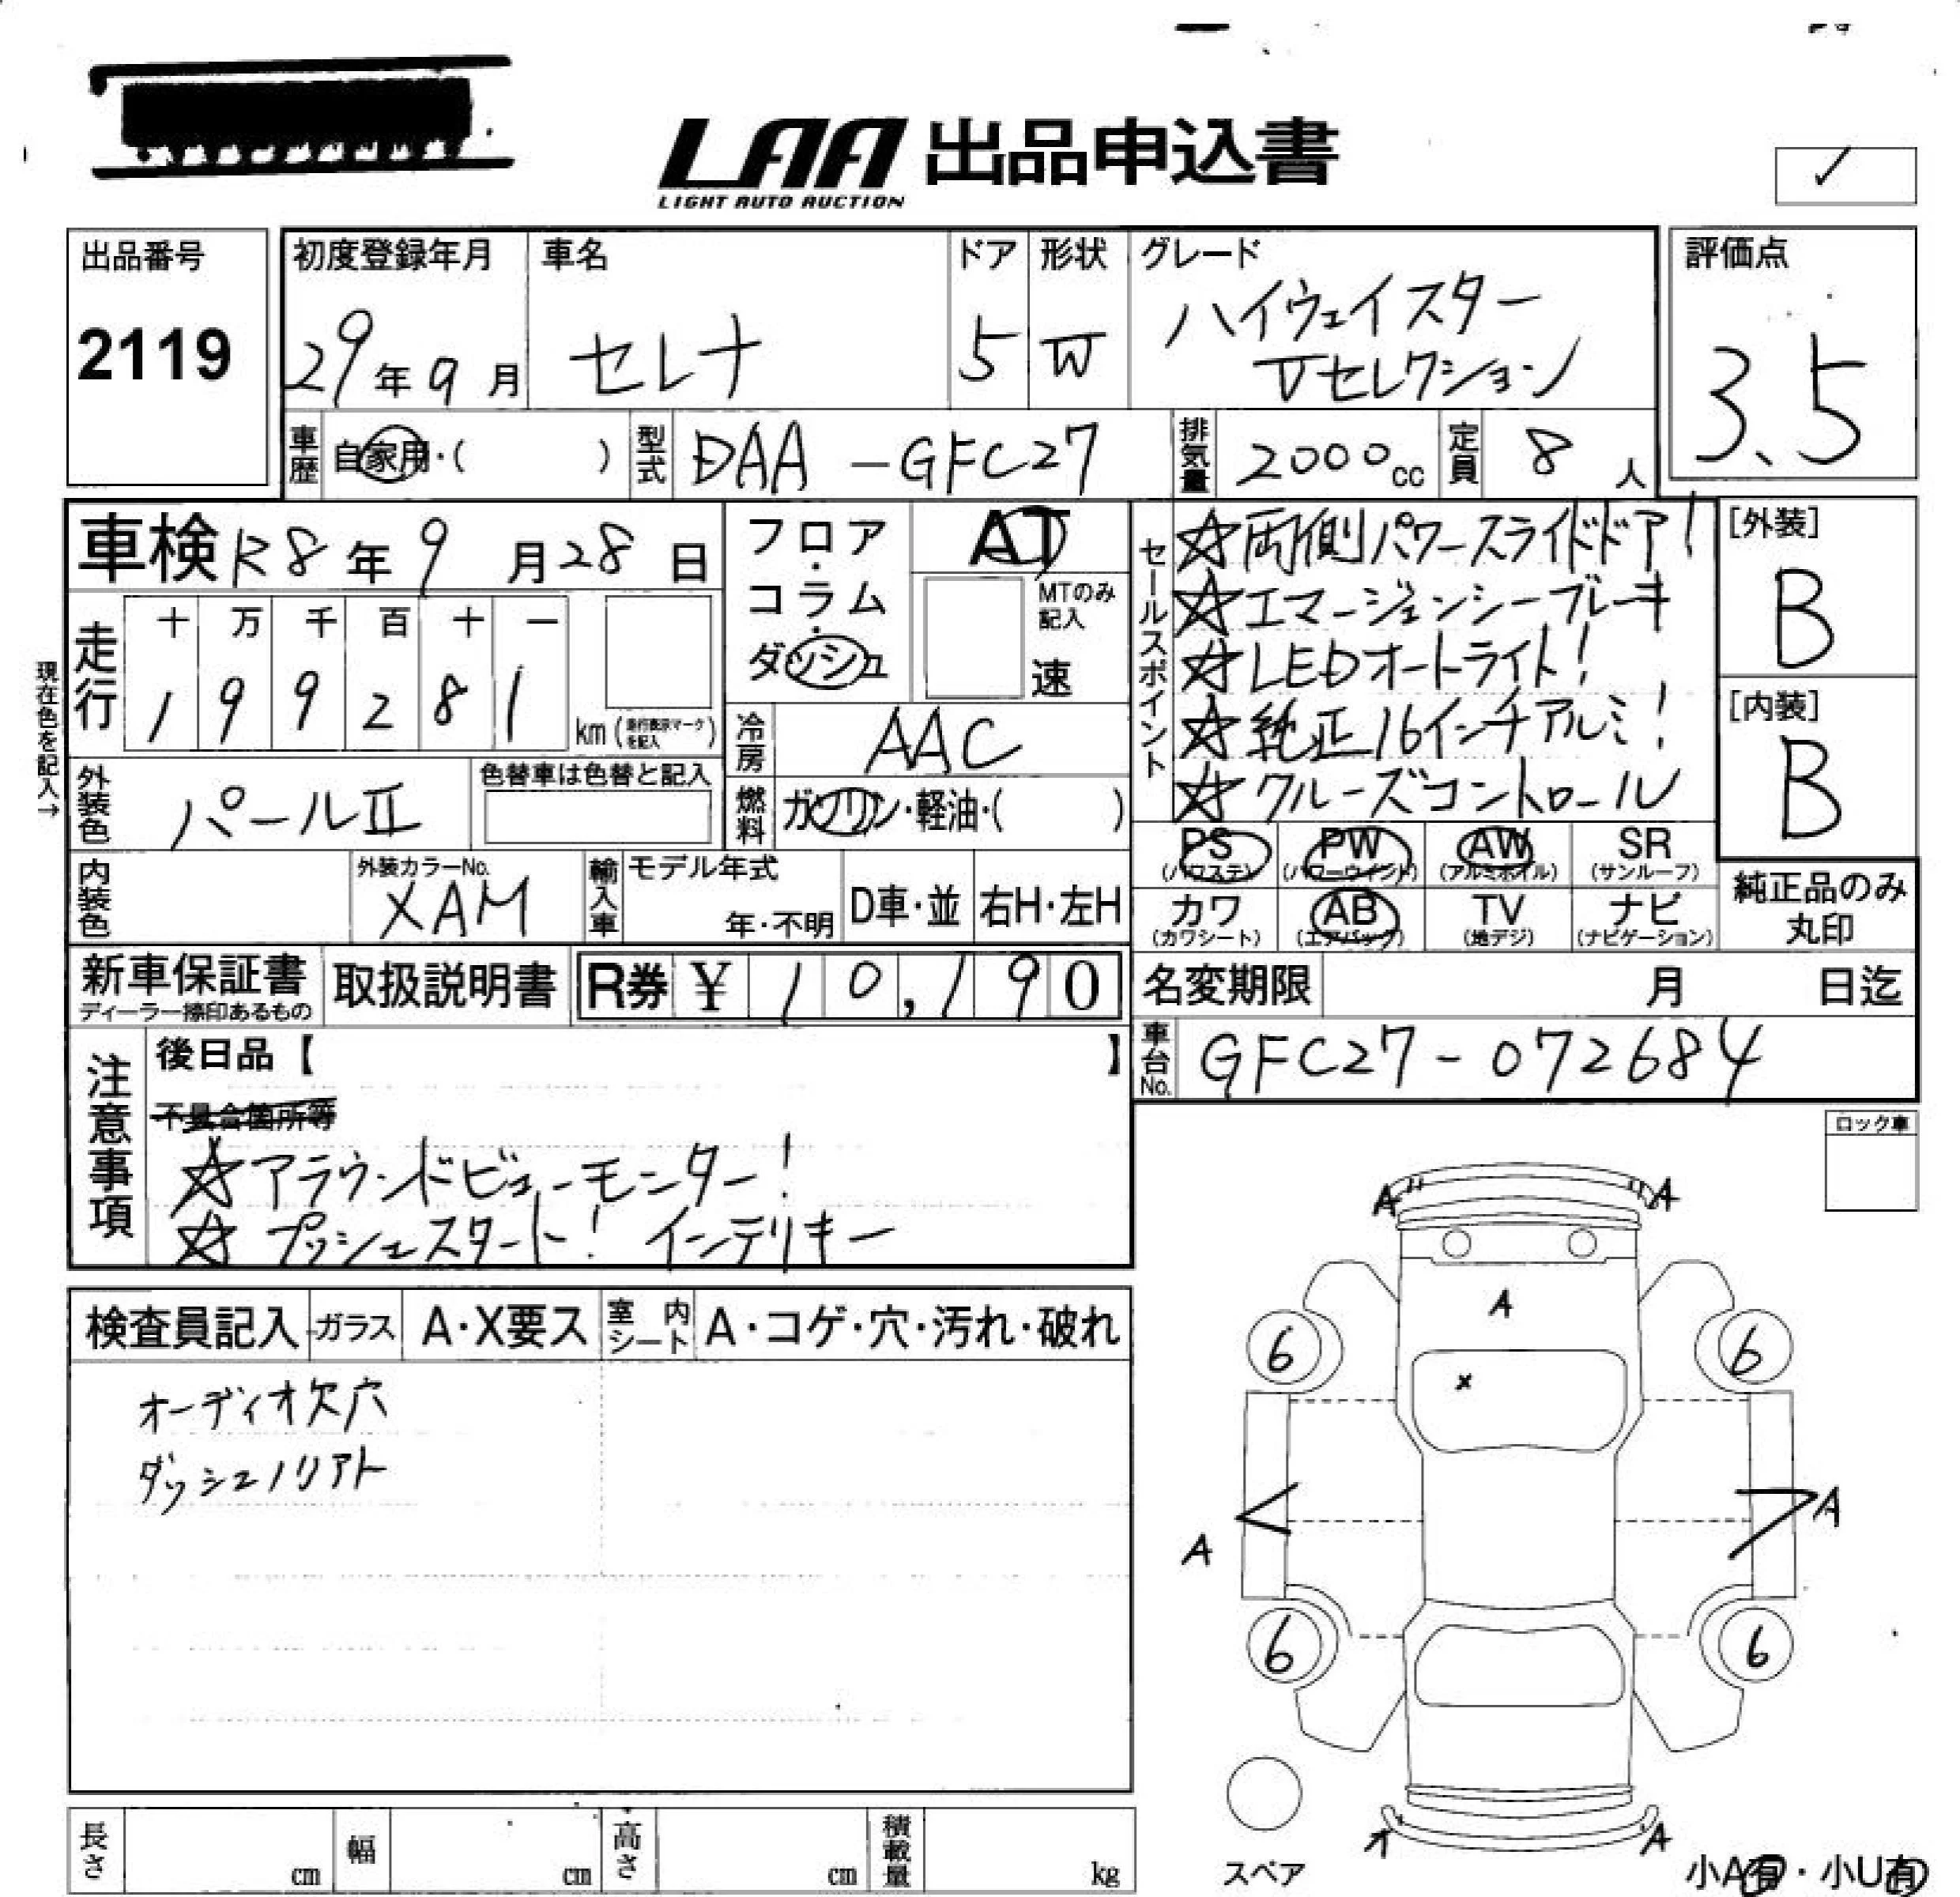 LAA 出品申込書
LIGHT AUTO AUCTION
✓
出品番号
2119
初度登録年月
29年9月
車名
セレナ
ドア
5
形状
W
グレード
ハイウェイスター
Vセレクション
評価点
3.5
車歴
自家用・( )
型式
DAA-GFC27
排気量
2000cc
定員
8人
車検 R8年9月28日
フロア・コラム・ダッシュ
AT
MTのみ記入
速
走行
十 万 千 百 十 一
1 9 9 2 8 1
km(走行表示マークを記入)
現在色を記入→
冷房
AAC
燃料
ガソリン・軽油・( )
外装色
パールⅡ
色替車は色替と記入
内装色
外装カラーNo.
XAM
輸入車
モデル年式
年・不明
D車・並
右H・左H
セールスポイント
☆両側パワースライドドア!
☆エマージェンシーブレーキ
☆LEDオートライト!
☆純正16インチアルミ!
☆クルーズコントロール
[外装]
B
[内装]
B
PS
(パワステ)
PW
(パワーウィンド)
AW
(アルミホイル)
SR
(サンルーフ)
カワ
(カワシート)
AB
(エアバック)
TV
(地デジ)
ナビ
(ナビゲーション)
純正品のみ
丸印
新車保証書
ディーラー捺印あるもの
取扱説明書
R券 ¥10,190
名変期限
月 日迄
車台No.
GFC27-072684
注意事項
後日品【 】
不具合箇所等
☆アラウンドビューモニター!
☆プッシュスタート! インテリキー
ロック車
検査員記入
ガラス
A・X要ス
室内シート
A・コゲ・穴・汚れ・破れ
オーディオ欠穴
ダッシュノリアト
A A
A
6 6
×
A
A
6 6
A
スペア
小A有・小U有
長さ
cm
幅
cm
高さ
cm
積載量
kg